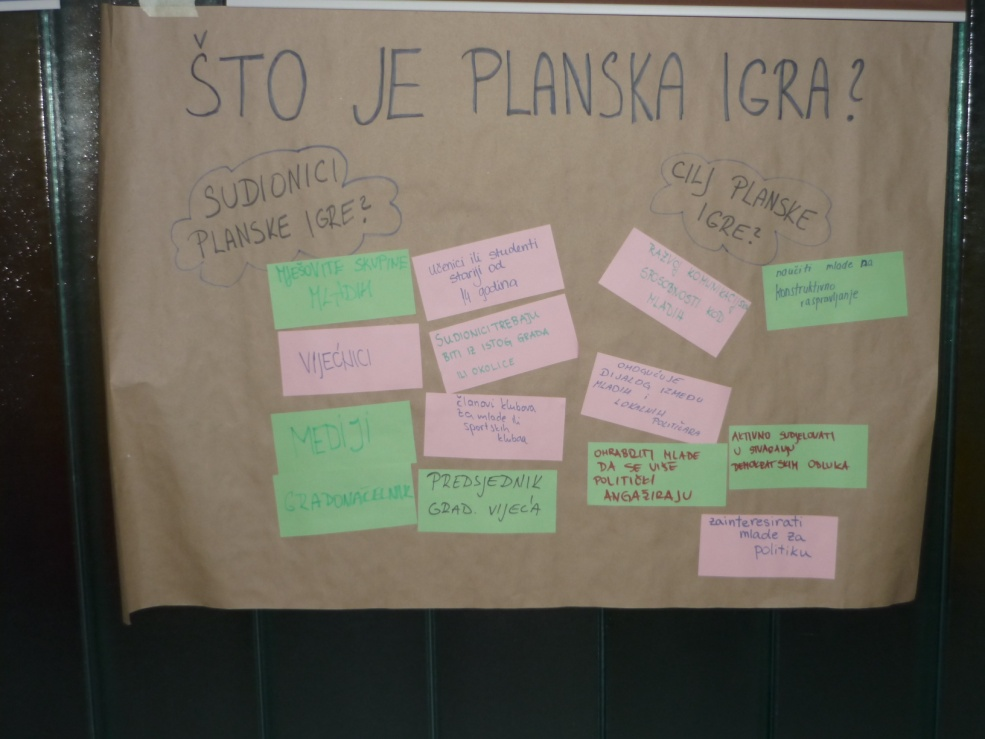 ŠTO JE PLANSKA IGRA?
SUDIONICI
PLANSKE IGRE?
MJEŠOVITE SKUPINE
MLADIH
učenici ili studenti
stariji od
14 godina
VIJEĆNICI
SUDIONICI TREBAJU
BITI IZ ISTOG GRADA
ILI OKOLICE
MEDIJI
članovi klubova
za mlade i
sportskih
klubova
GRADONAČELNIK
PREDSJEDNIK
GRAD. VIJEĆA
CILJ PLANSKE
IGRE?
RAZVOJ KOMUNIKACIJSKIH
SPOSOBNOSTI KOD
MLADIH
naučiti mlade na
konstruktivno
raspravljanje
OMOGUĆUJE
DIJALOG IZMEĐU
MLADIH I
LOKALNIH
POLITIČARA
OHRABRITI MLADE
DA SE VIŠE
POLITIČKI
ANGAŽIRAJU
AKTIVNO SUDJELOVATI
U STVARANJU
DEMOKRATSKIH ODLUKA
zainteresirati
mlade za
politiku